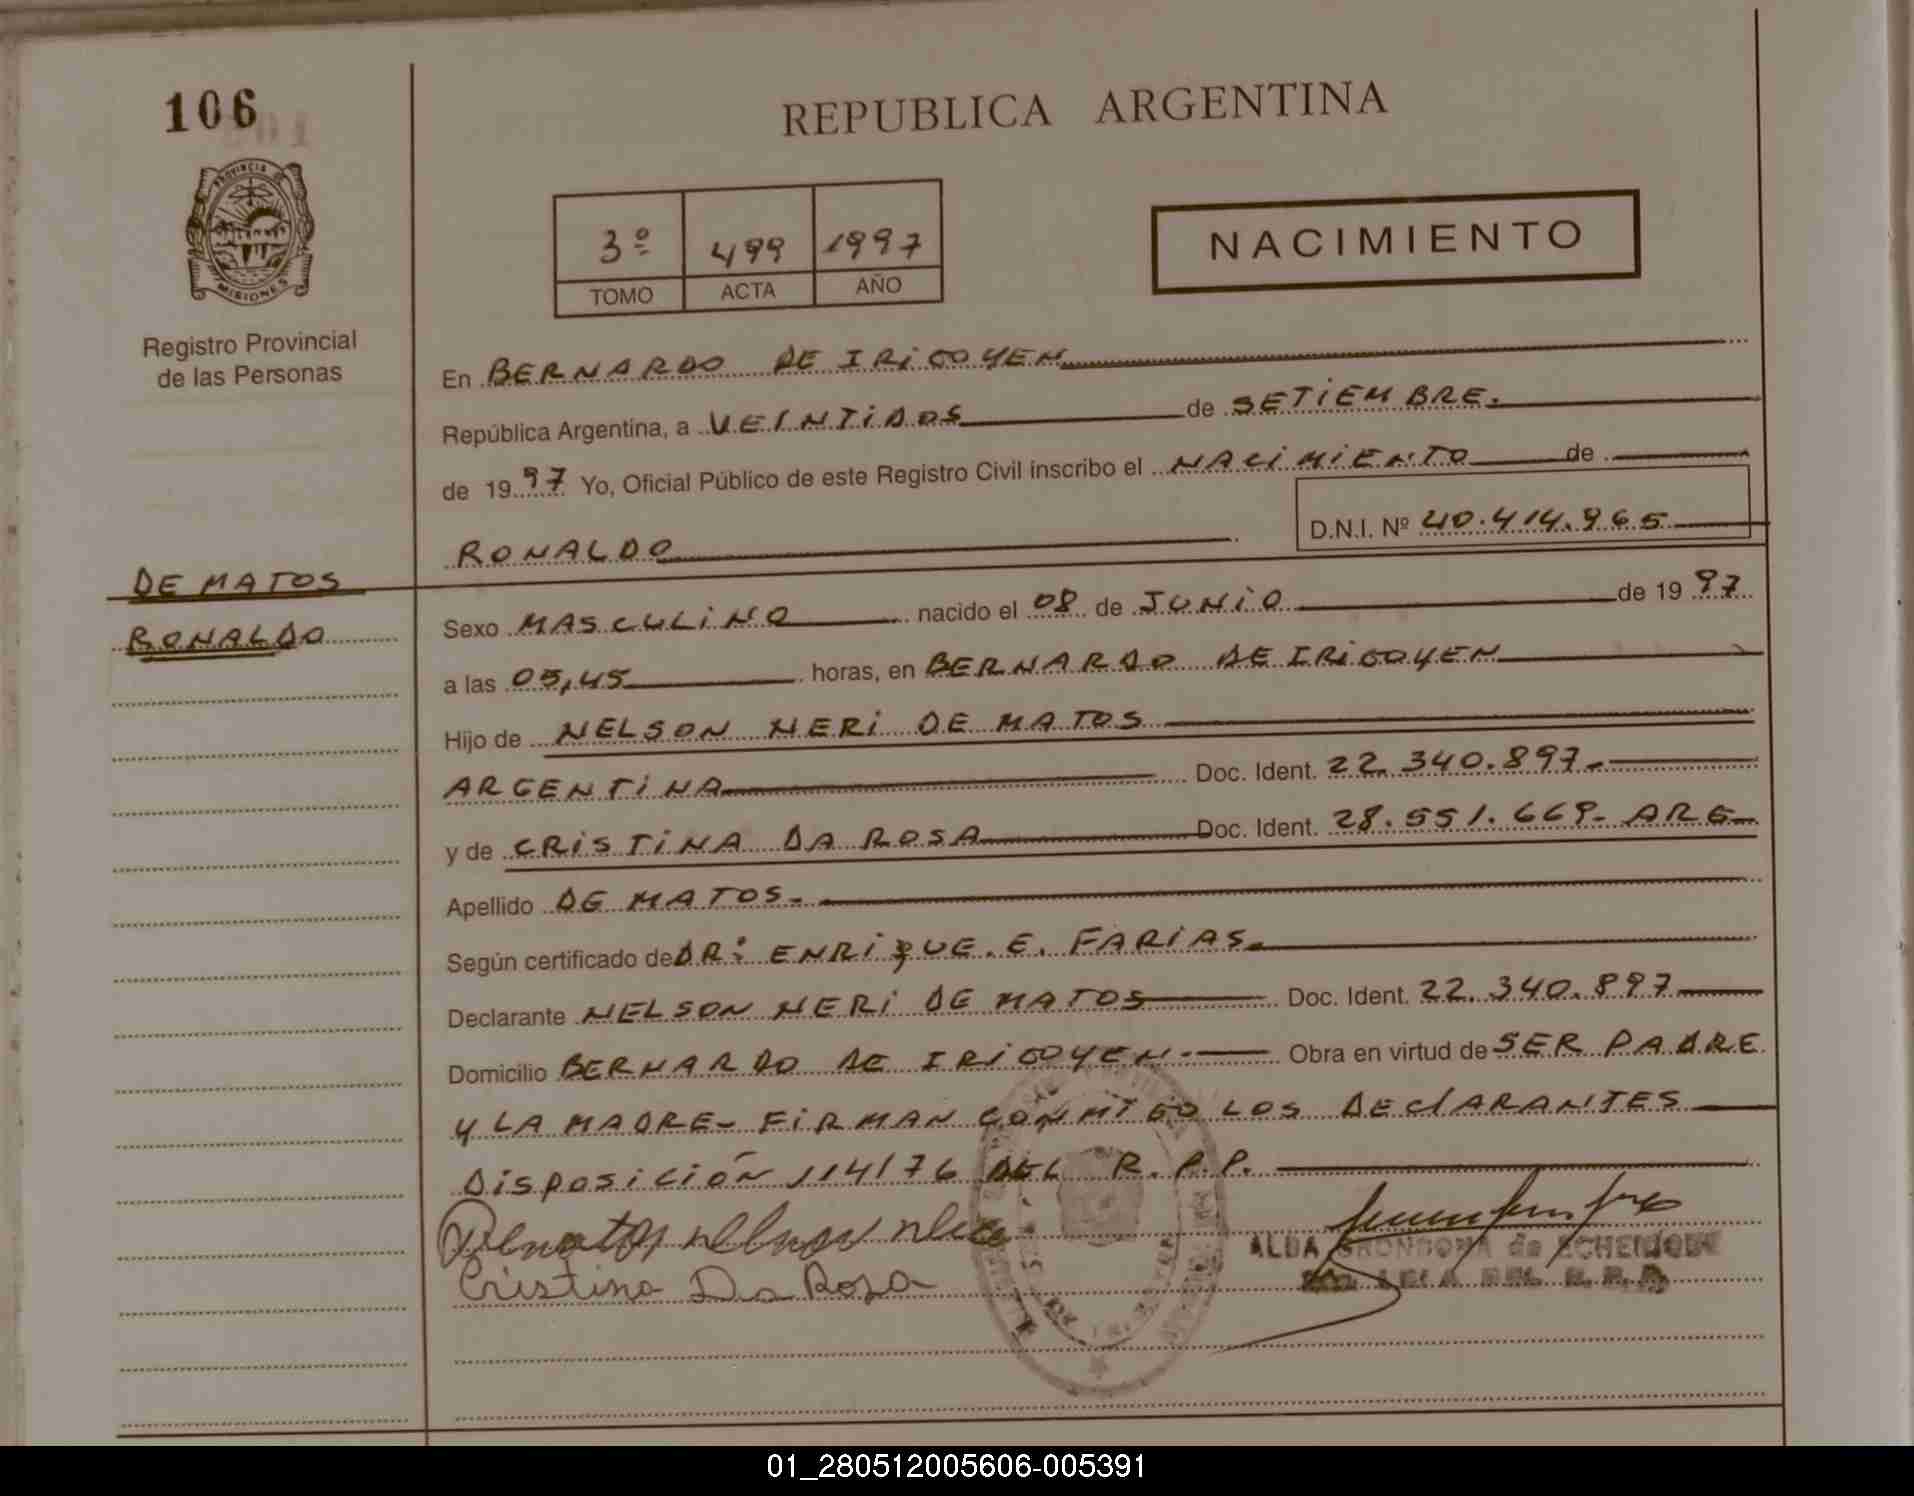 106
REPUBLICA ARGENTINA
PROVINCIA DE
MISIONES
3º 499 1997
TOMO ACTA AÑO
NACIMIENTO
Registro Provincial
de las Personas
En BERNARDO DE IRIGOYEN
República Argentina, a VEINTIDOS de SETIEMBRE.
de 1997 Yo, Oficial Público de este Registro Civil inscribo el NACIMIENTO de
RONALDO D.N.I. Nº 40.414.965
DE MATOS
RONALDO
Sexo MASCULINO nacido el 08 de JUNIO de 1997
a las 05,45 horas, en BERNARDO DE IRIGOYEN
Hijo de NELSON NERI DE MATOS
ARGENTINA Doc. Ident. 22.340.897.-
y de CRISTINA DA ROSA Doc. Ident. 28.551.669- ARG-
Apellido DE MATOS.-
Según certificado de DR: ENRIQUE.E. FARIAS.
Declarante NELSON NERI DE MATOS Doc. Ident. 22.340.897
Domicilio BERNARDO DE IRIGOYEN.- Obra en virtud de SER PADRE
Y LA MADRE- FIRMAN CONMIGO LOS DEClARANTES
DISPOSICIÓN 114/76 DEL R.P.P.
Cristina Da Rosa
ALBA GRONDONA de ECHENIQUE
01_280512005606-005391